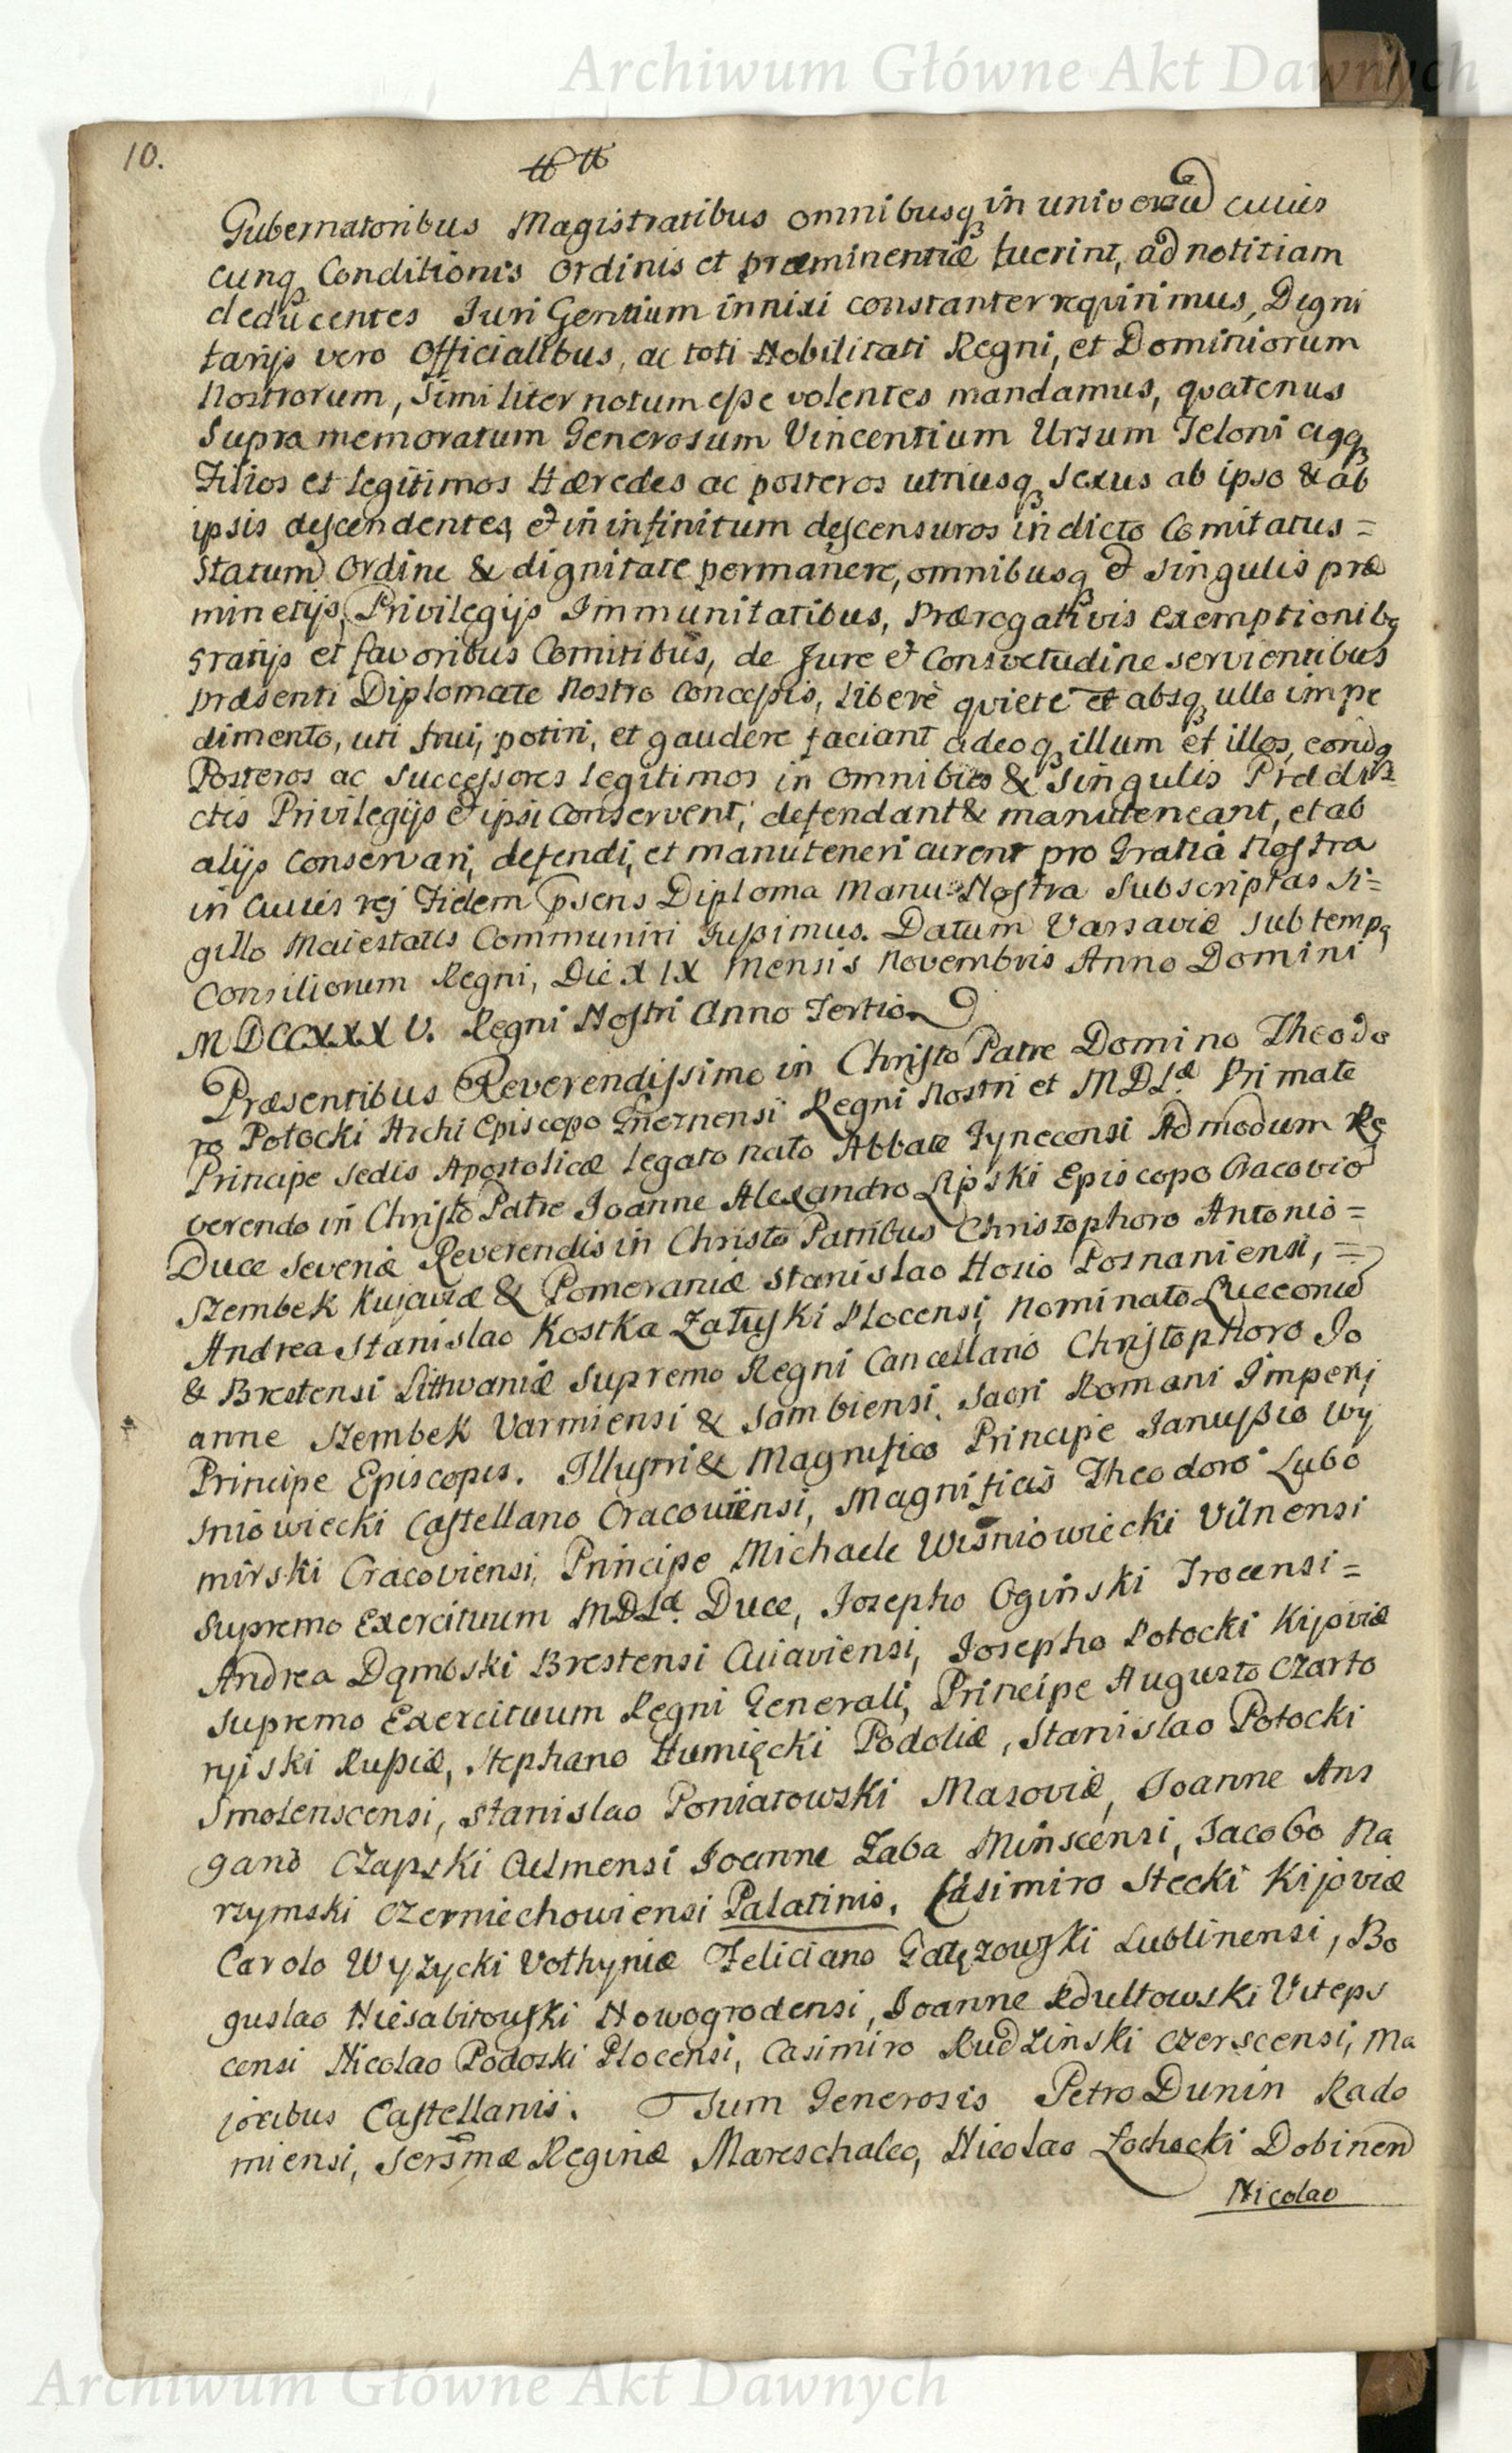 Archiwum Główne Akt Dawnych
10.
Gubernatoribus Magistratibus omnibusq in universũ cuius
cunq Conditionis Ordinis et præminentiæ fuerint, ad notitiam
deducentes Juri Gentium innixi constanter requirimus, Digni
tarijs vero Officialibus, ac toti Nobilitati Regni, et Dominiorum
Nostrorum, Similiter notum esse volentes mandamus, quatenus
Supra memoratum Generosum Vincentium Ursum Jeloni
Filios et legitimos Hæredes ac posteros utriusq Sexus ab ipso & ab
ipsis descendentes, et in infinitum descensuros in dicto Comitatus =
Statum Ordine & dignitate permanere, omnibusq et singulis præ
minetijs, Privilegijs Immunitatibus, Prærogativis exemptionibq
gratijs et favoribus Comitibus, de Jure et Consvetudine servientibus
præsenti Diplomate Nostro Concessis, liberè quietè et absq ullo impe
dimento, uti frui, potiri, et gaudere faciant adeoq illum et illos, eorũq
Posteros ac Successores legitimos in omnibus & Singulis Prædi=
ctis Privilegijs et ipsi Conservent, defendant & manuteneant, et ab
alijs Conservari, defendi, et manuteneri curent pro Gratia Nostra
in Cuius rej Fidem psens Diploma Manu Nostra Subscriptas Si=
gillo Maiestatis Communiri Jussimus. Datum Varsaviæ Sub tempq
Consiliorum Regni, Die XIX Mensis Novembris Anno Domini
MDCCXXXV. Regni Nostri Anno Tertio.
Præsentibus Reverendissimo in Christo Patre Domino Theodo
ro Potocki Archi Episcopo Gneznensi Regni Nostri et MDLæ Primate
Principe Sedis Apostolicæ Legato nato Abbate Tynecensi Admodum Re
verendo in Christo Patre Joanne Alexandro Lipski Episcopo Cracovio
Duce Severiæ Reverendis in Christo Patribus Christophoro Antonio =
Szembek Kujaviæ & Pomeraniæ Stanislao Hosio Posnaniensi, =
Andrea Stanislao Kostka Załuski Plocensi, Nominato Luceoriẽ
& Brestensi Littwaniæ Supremo Regni Cancellario Christophoro Jo
anne Szembek Varmiensi & Sambiensi, Sacri Romani Imperij
Principe Episcopis. Illustri & Magnifico Principe Janussio Wy
sniowiecki Castellano Cracowiensi, Magnificis Theodoro Lubo
mirski Cracoviensi, Principe Michaele Wisniowiecki Vilnensi
Supremo Exercituum MDLæ. Duce, Josepho Oginski Trocensi =
Andrea Dąmbski Brestensi Cuiaviensi, Josepho Potocki Kijoviæ
Supremo Exercituum Regni Generali, Principe Augusto Czarto
ryiski Russiæ, Stephano Humięcki Podoliæ, Stanislao Potocki
Smolenscensi, Stanislao Poniatowski Masoviæ, Joanne Ans
gano Czapski Culmensi Joanne Zaba Minscensi, Jacobo Na
rzymski Czerniechowiensi Palatinis. Casimiro Stecki Kijoviæ
Carolo Wyżycki Volhyniæ Feliciano Gałęzowski Lublinensi, Bo
guslao Niesabitowski Nowogrodensi, Joanne Rdultowski Viteps
censi Nicolao Podoski Plocensi, Casimiro Rudzinski Czerscensi, Ma
joribus Castellanis. Tum Generosis Petro Dunin Rado
miensi, Serẽmæ Reginæ Mareschalco, Nicolao Łochocki Dobinen
Nicolao
Archiwum Główne Akt Dawnych